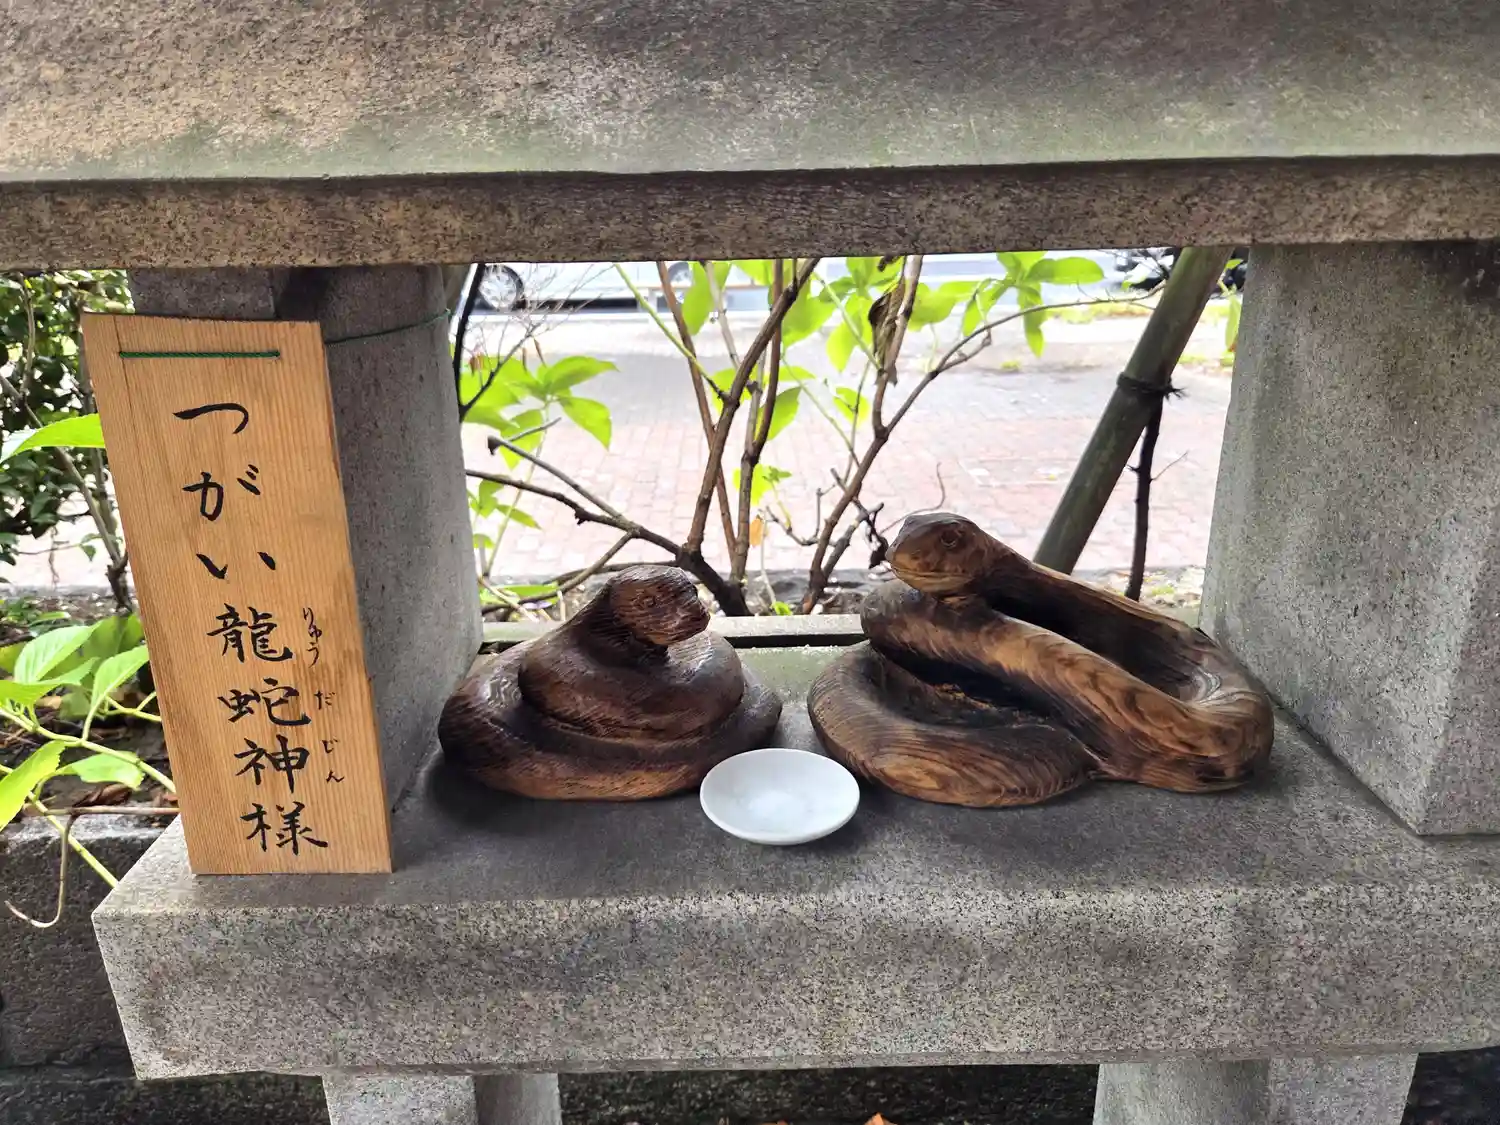 つがい龍蛇神様
りゅうだじん